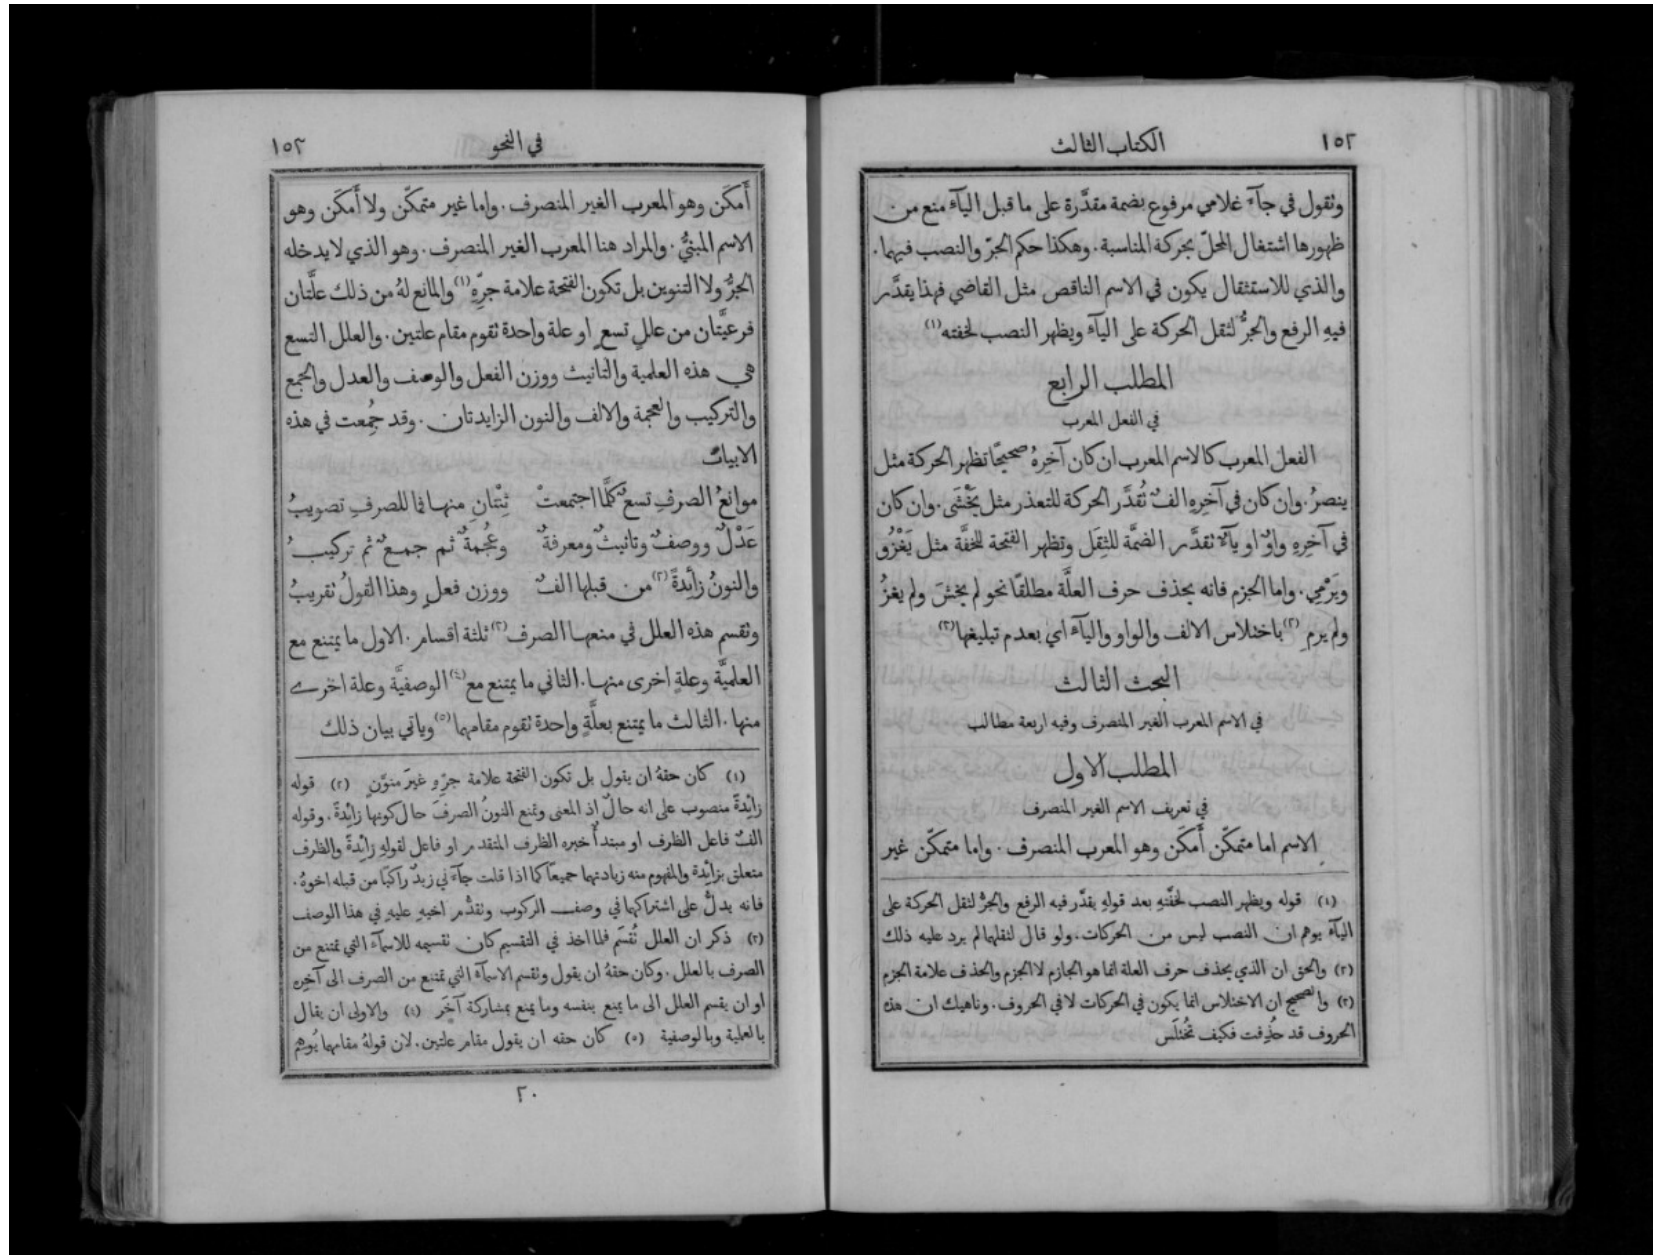 ١٥٢
الكتاب الثالث
ونقول في جآءَ غلامي مرفوع بضمة مقدَّرة على ما قبل اليآء منع من
ظهورها اشتغال المحلّ بحركة المناسبة. وهكذا حكم الجرّ والنصب فيهما.
والذي للاستثقال يكون في الاسم الناقص مثل القاضي فهذا يقدَّر
فيهِ الرفع والجرُّ لثقل الحركة على اليآء ويظهر النصب لخفته (١)
المطلب الرابع
في الفعل المعرب
الفعل المعرب كالاسم المعرب ان كان آخِرهُ صحيحًا تظهر الحركة مثل
ينصرُ. وان كان في آخِرِهِ الفٌ تُقدَّر الحركة للتعذر مثل يَخْشَى. وان كان
في آخِرِهِ واوٌ او يآءٌ تقدَّر الضمَّة للثِقَل وتظهر الفتحة للخفَّة مثل يَغْزُو
ويَرْمِي. واما الجزم فانه بحذف حرف العلَّة مطلقًا نحو لم يخشَ ولم يغزُ
ولم يرمِ (٢) باختلاس الالف والواو واليآء اي بعدم تبليغها (٣)
البحث الثالث
في الاسم المعرب الغير المنصرف وفيه اربعة مطالب
المطلب الاول
في تعريف الاسم الغير المنصرف
الاسم اما متمكّن أَمكَن وهو المعرب المنصرف. واما متمكّن غير
(١) قوله ويظهر النصب لخفَّتهِ بعد قولهِ يقدَّر فيه الرفع والجرُّ لثقل الحركة على
اليآء يوهم ان النصب ليس من الحركات. ولو قال لثقلهما لم يرد عليه ذلك
(٢) والحق ان الذي يحذف حرف العلة انما هو الجازم لا الجزم والحذف علامة الجزم
(٣) والصحيح ان الاختلاس انما يكون في الحركات لا في الحروف. وناهيك ان هذه
الحروف قد حُذِفت فكيف تُختلَس
في النحو
١٥٣
أَمكَن وهو المعرب الغير المنصرف. واما غير متمكّن ولا أَمكَن وهو
الاسم المبنيُّ. والمراد هنا المعرب الغير المنصرف. وهو الذي لا يدخله
الجرُّ ولا التنوين بل تكون الفتحة علامة جرّهِ (١) والمانع لهُ من ذلك علَّتان
فرعيَّتان من عللٍ تسعٍ او علة واحدة تقوم مقام علتين. والعلل التسع
هي هذه العلمية والتانيث ووزن الفعل والوصف والعدل والجمع
والتركيب والعجمة والالف والنون الزايدتان. وقد جُمِعت في هذه
الابيات
موانعُ الصرفِ تسعٌ كلَّما اجتمعتْ ثِنْتانِ منها فما للصرفِ تصويبُ
عَدْلٌ ووصفٌ وتانيثٌ ومعرفةٌ وعُجْمةٌ ثم جمعٌ ثم تركيبُ
والنونُ زائِدةً (٢) من قبلها الفٌ ووزن فعلٍ وهذا القولُ تقريبُ
وتقسم هذه العلل في منعها الصرف (٣) ثلثة اقسام. الاول ما يمتنع مع
العلميَّة وعلةٍ اخرى منها. الثاني ما يمتنع مع (٤) الوصفيَّة وعلة اخرى
منها. الثالث ما يمتنع بعلَّةٍ واحدة تقوم مقامهما (٥) وياتي بيان ذلك
(١) كان حقهُ ان يقول بل تكون الفتحة علامة جرّهِ غيرَ منوَّنٍ (٢) قوله
زائِدةً منصوب على انه حالٌ اذ المعنى وتمنع النونُ الصرفَ حال كونها زائِدةً. وقوله
الفٌ فاعل الظرف او مبتدأٌ خبره الظرف المتقدم او فاعل لقولهِ زائِدةً والظرف
متعلق بزائِدة والمفهوم منه زيادتهما جميعًا كما اذا قلت جآءَني زيدٌ راكبًا من قبله اخوهُ.
فانه يدلُّ على اشتراكهما في وصف الركوب وتقدُّم اخيهِ عليهِ في هذا الوصف
(٣) ذكر ان العلل تُقسَم فلما اخذ في التقسيم كان تقسيمه للاسمآء التي تمتنع من
الصرف بالعلل. وكان حقهُ ان يقول وتقسم الاسمآء التي تمتنع من الصرف الى آخِره
او ان يقسم العلل الى ما يمنع بنفسه وما يمنع بمشاركة آخَر (٤) والاولى ان يقال
بالعلمية وبالوصفية (٥) كان حقه ان يقول مقام علتين. لان قولهُ مقامهما يُوهِم
٢٠